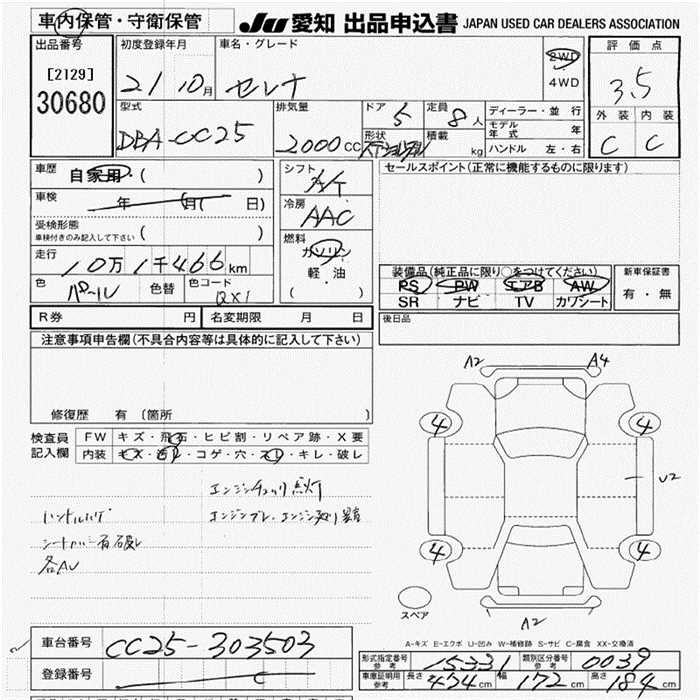 車内保管・守衛保管
JU 愛知 出品申込書 JAPAN USED CAR DEALERS ASSOCIATION
出品番号
[2129]
30680
初度登録年月
21 10月
車名・グレード
セレナ
2WD
4WD
評価点
3.5
外装 内装
C C
型式
DBA-CC25
排気量
2000cc
ドア 5
定員 8人
形状
積載 kg
ディーラー・並行
モデル年式 年
ハンドル 左・右
車歴 自家用 ( )
車検 年 月( 日)
受検形態
車検付きのみ記入して下さい ( )
走行
10万1千466km
色 パール 色替 色コード QX1
シフト
A/T
冷房
AAC
燃料
ガソリン
軽・油
( )
セールスポイント(正常に機能するものに限ります)
装備品(純正品に限り○をつけてください)
PS PW エアB AW
SR ナビ TV カワシート
新車保証書
有・無
R券 円 名変期限 月 日
後日品
注意事項申告欄(不具合内容等は具体的に記入して下さい)
修復歴 有 〔箇所 〕
検査員記入欄
FW キズ・飛石・ヒビ割・リペア跡・X要
内装 キズ・汚れ・コゲ・穴・スレ・キレ・破レ
エンジンチェック点灯
エンジンブレ、エンジン
各AU
A2 A4
4 4
U2
4 4
A2
スペア
A-キズ E-エクボ U-凹み W-補修跡 S-サビ C-腐食 XX-交換済
車台番号 CC25-303503
登録番号
形式指定番号 参考 15331 類別区分番号 参考 0039
車庫証明用 参考 長さ cm 幅 172cm 高さ 184cm